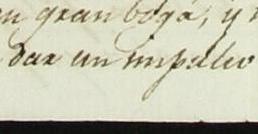 en gran boga, y
dar un impulso